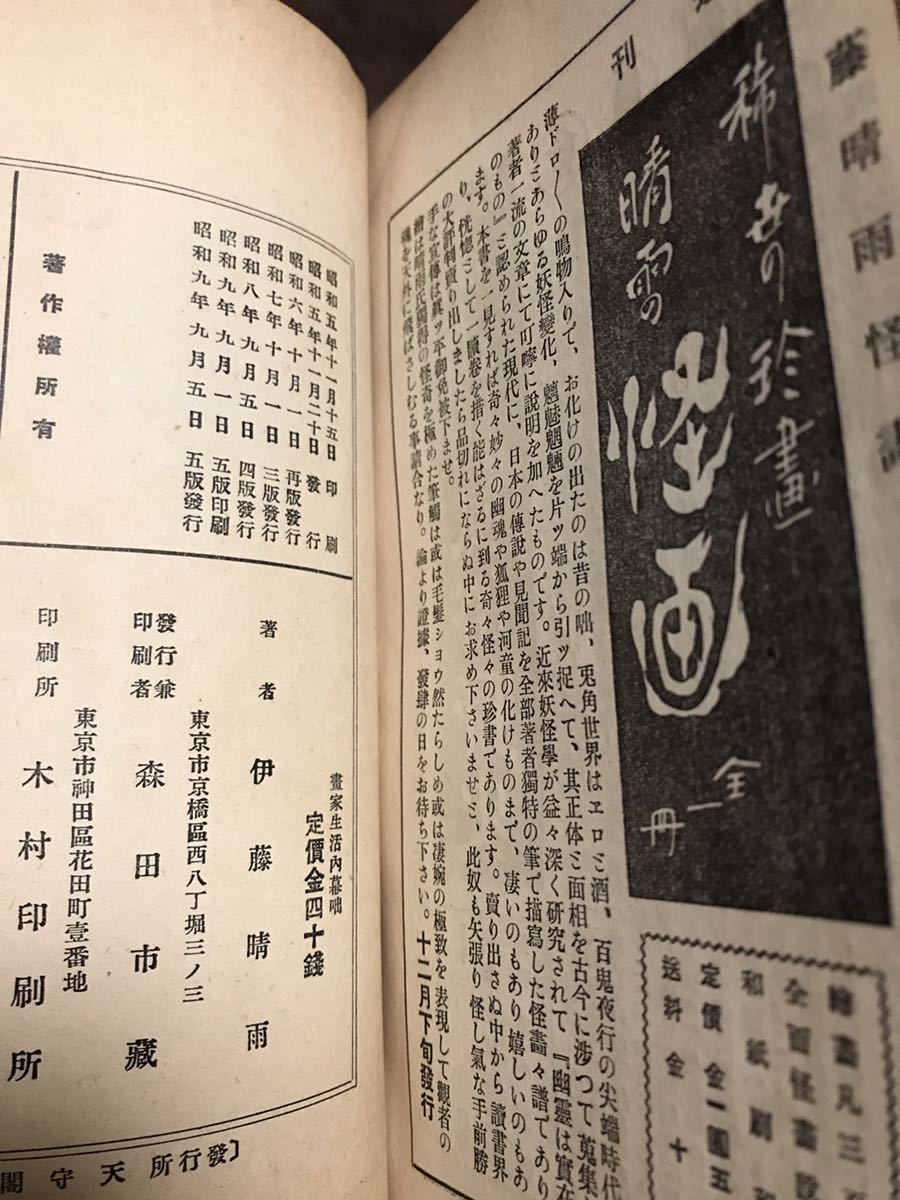 刊
藤晴雨怪畵
稀世の珍畫
晴雨の
怪画
全一冊
繪畵凡三
全頁怪畵
和紙刷
定價 金一圓五
送料 金十
薄ドロ〱の鳴物入りで、お化けの出たのは昔の咄、兎角世界はエロミ酒、百鬼夜行の尖端時代
ありミあらゆる妖怪變化、魑魅魍魎を片ツ端から引ツ捉へて、其正体ミ面相を古今に渉つて蒐集
著者一流の文章にて叮嚀に說明を加へたものです。近來妖怪學が益々深く研究されて『幽靈は實在
のもの』ミ認められた現代に、日本の傳說や見聞記を全部著者獨特の筆で描寫した怪畵々譜であり
ます。本書を一見すれば奇々妙々の幽魂や狐狸や河童の化けものまで、凄いのもあり嬉しいのもあ
り、恍惚ミして一讀卷を措く能はざるに到る奇々怪々の珍書であります。賣り出さぬ中から讀書界
の大評判賣り出しましたら品切れにならぬ中にお求め下さいませミ、此奴も矢張り怪し氣な手前勝
手な宣傳は眞ツ平御免被下ませ。
繪は晴雨氏獨得の怪奇を極めた筆觸は或は毛髮ショウ然たらしめ或は凄婉の極致を表現して觀者の
魂を天外に飛ばさしむる事請合なり。論より證據、發肆の日をお待ち下さい。十二月下旬發行
昭和五年十一月十五日 印刷
昭和五年十一月二十日 發行
昭和六年十月一日 再版發行
昭和七年十月一日 三版發行
昭和八年九月五日 四版發行
昭和九年九月一日 五版印刷
昭和九年九月五日 五版發行
著作權所有
畫家生活內幕咄
定價金四十錢
著者 伊藤晴雨
東京市京橋區西八丁堀三ノ三
發行兼印刷者 森田市藏
東京市神田區花田町壹番地
印刷所 木村印刷所
發行所 天守閣